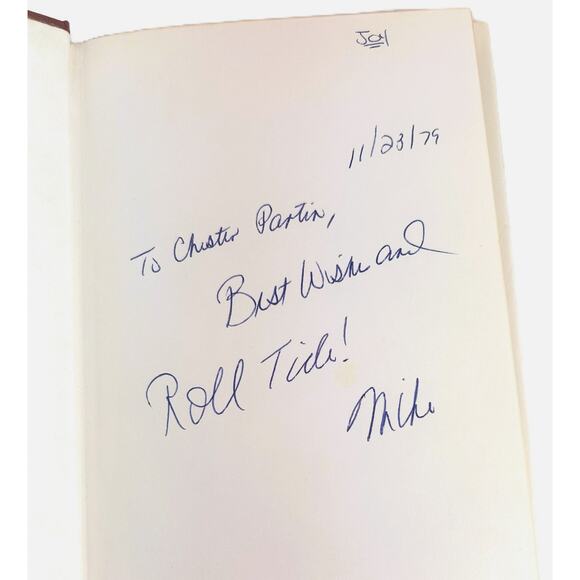 Joy
11/23/79
To Chester Partin,
Best Wishes and
Roll Tide!
Mike